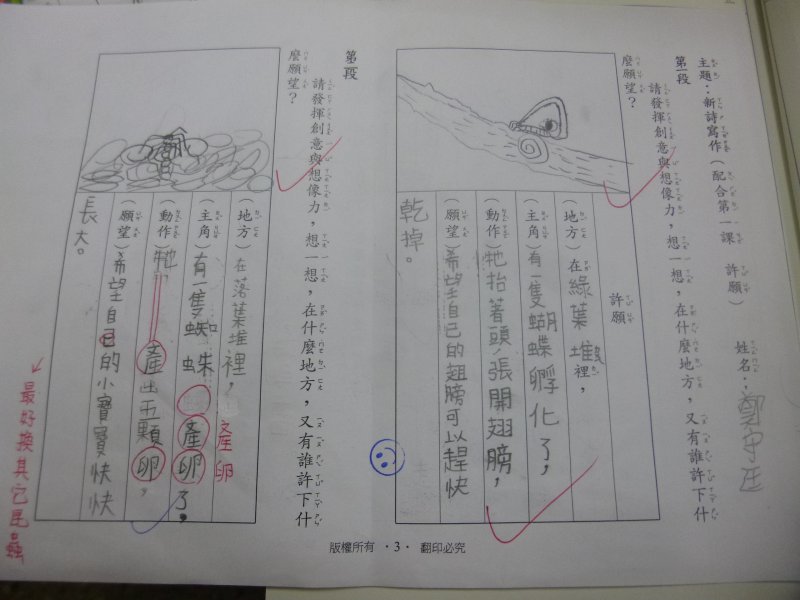 主題：新詩寫作（配合第一課　許願）　姓名：鄭守廷
第一段
請發揮創意與想像力，想一想，在什麼地方，又有誰許下什
麼願望？
許願
（地方）在綠葉堆裡，
（主角）有一隻蝴蝶孵化了，
（動作）牠抬著頭，張開翅膀，
（願望）希望自己的翅膀可以趕快
乾掉。
第二段
請發揮創意與想像力，想一想，在什麼地方，又有誰許下什
麼願望？
（地方）在落葉堆裡，
產卵
（主角）有一隻蜘蛛產卵了，
（動作）牠產出五顆卵，
（願望）希望自己的小寶寶快快
長大。
最好換其它昆蟲
版權所有 ・3・ 翻印必究